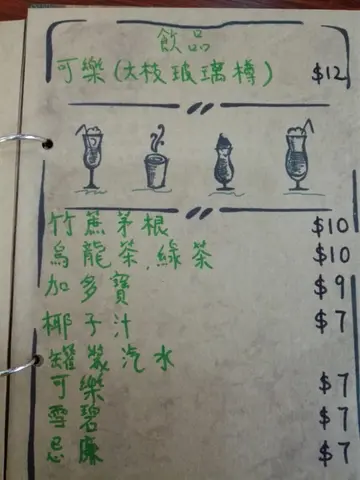 飲品
可樂(大枝玻璃樽) $12
竹蔗茅根 $10
烏龍茶,綠茶 $10
加多寶 $9
椰子汁 $7
罐裝汽水
可樂 $7
雪碧 $7
忌廉 $7